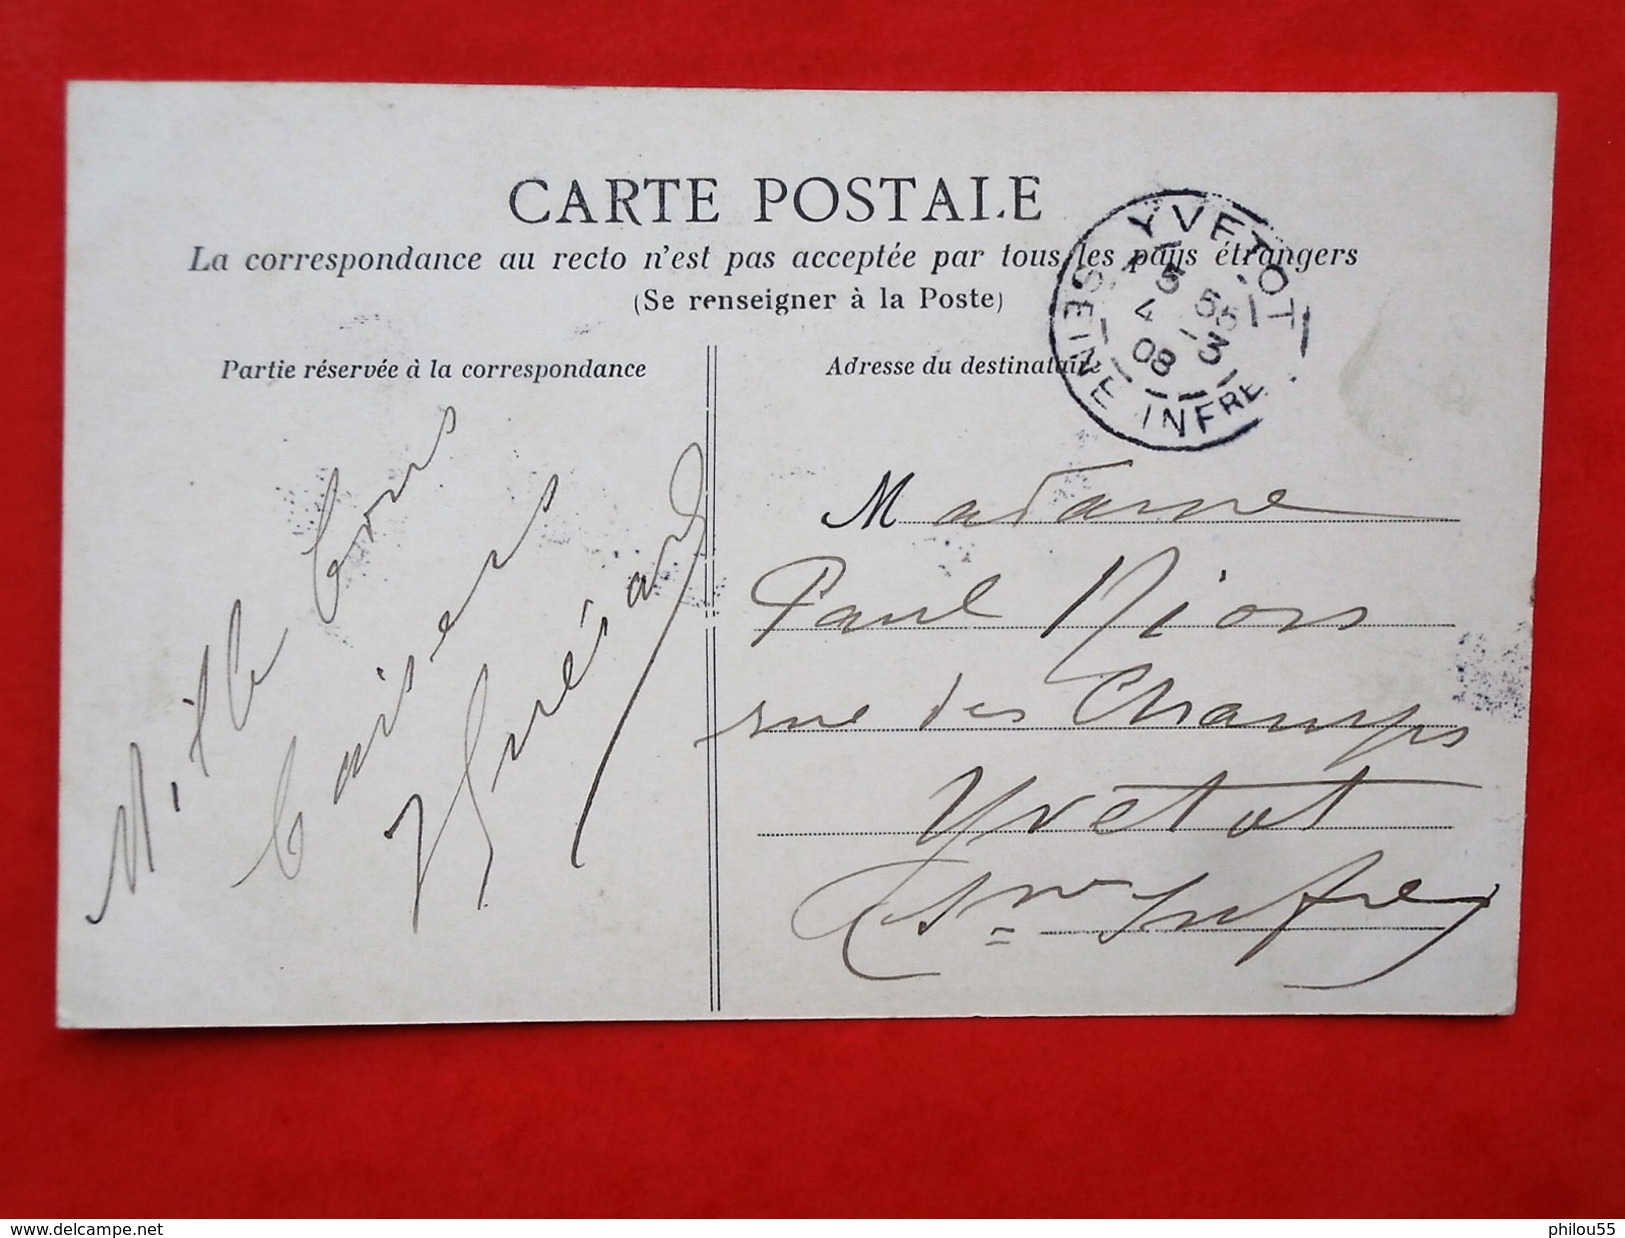 CARTE POSTALE
La correspondance au recto n'est pas acceptée par tous les pays étrangers
(Se renseigner à la Poste)
YVETOT
5 55
4 3
08
SEINE INFRE
Partie réservée à la correspondance
Adresse du destinataire
Mille bons
baisers
Madame
Paul
rue des Champs
Yvetot
Sne Infre
www.delcampe.net
philou55